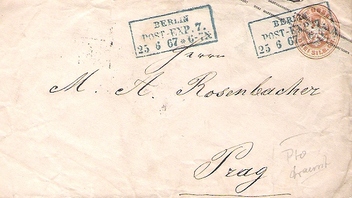 BERLIN
POST-EXP. 7.
25 6 67 * 6-7N
BERLIN
POST-EXP. 7.
25 6 67
Herrn
M. A. Rosenbacher
Prag
Pto